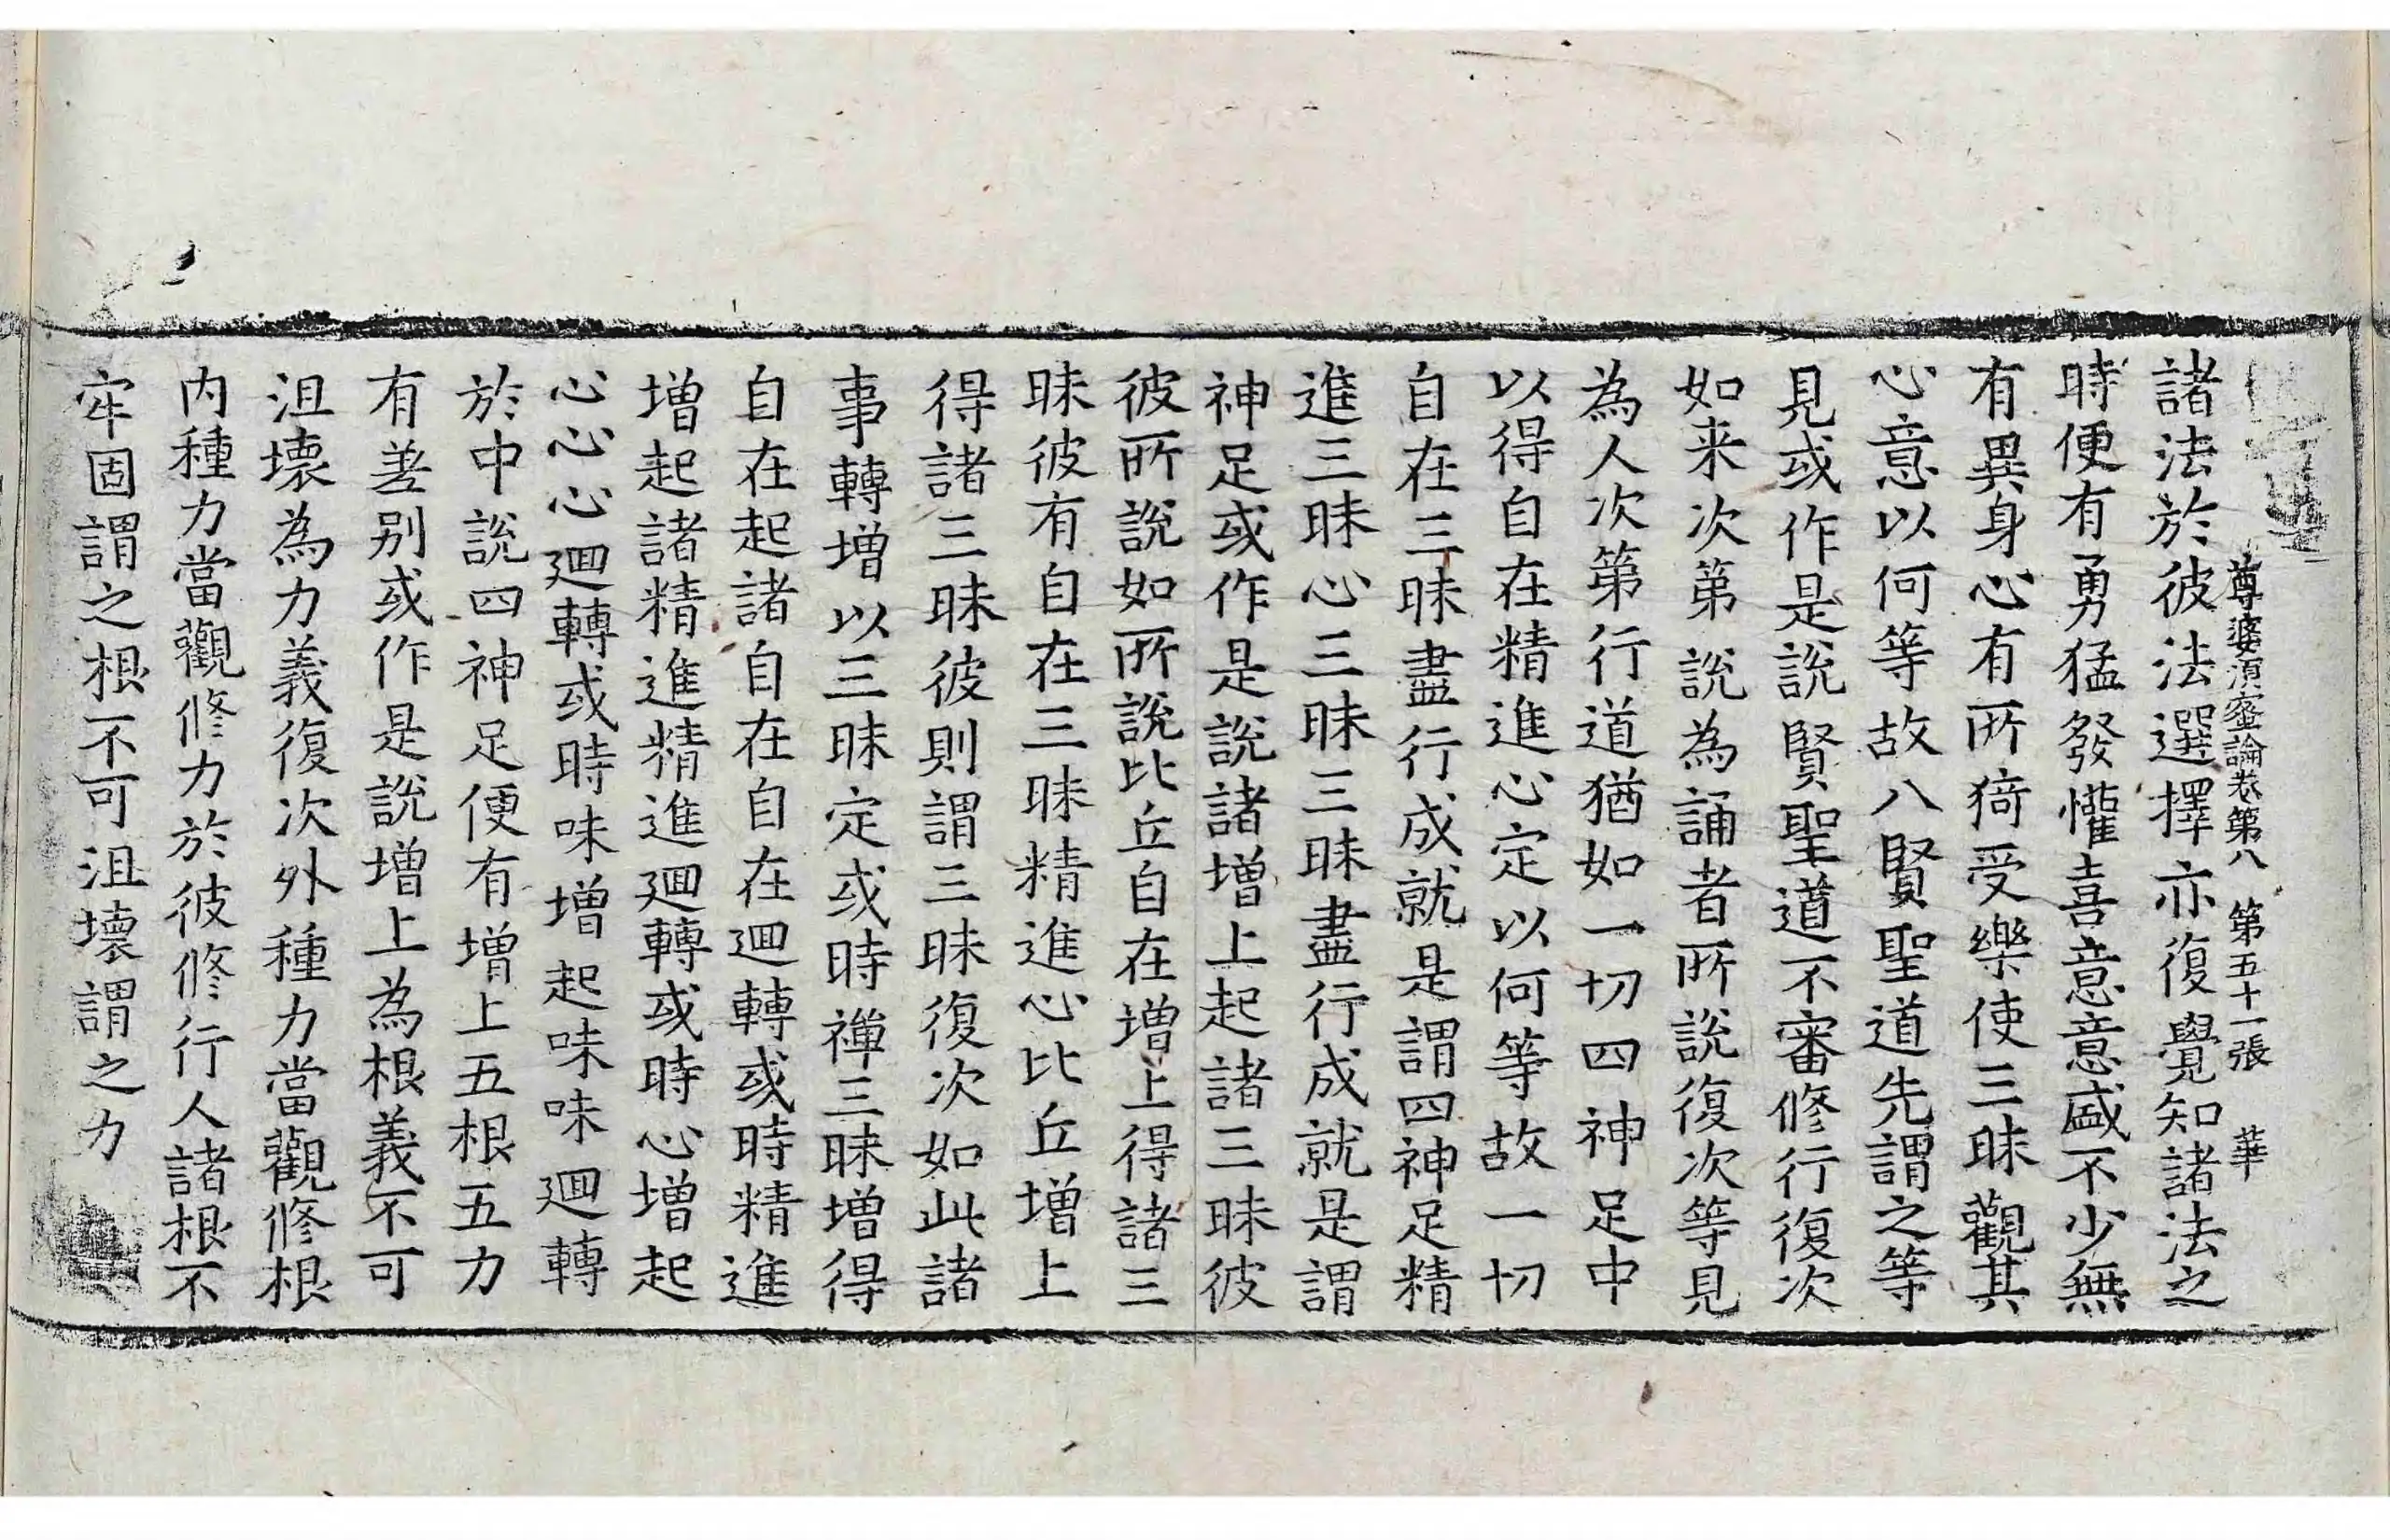 尊婆須蜜論卷第八 第五十一張 華
諸法於彼法選擇亦復覺知諸法之
時便有勇猛發懽喜意意盛不少無
有異身心有所猗受樂使三昧觀其
心意以何等故八賢聖道先謂之等
見或作是說賢聖道不審修行復次
如来次第說為誦者所說復次等見
為人次第行道猶如一切四神足中
以得自在精進心定以何等故一切
自在三昧盡行成就是謂四神足精
進三昧心三昧三昧盡行成就是謂
神足或作是說諸增上起諸三昧彼
彼所說如所說比丘自在增上得諸三
昧彼有自在三昧精進心比丘增上
得諸三昧彼則謂三昧復次如此諸
事轉增以三昧定或時禪三昧增得
自在起諸自在自在迴轉或時精進
增起諸精進精進迴轉或時心增起
心心心迴轉或時味增起味味迴轉
於中說四神足便有增上五根五力
有差别或作是說增上為根義不可
沮壞為力義復次外種力當觀修根
内種力當觀修力於彼修行人諸根不
牢固謂之根不可沮壞謂之力